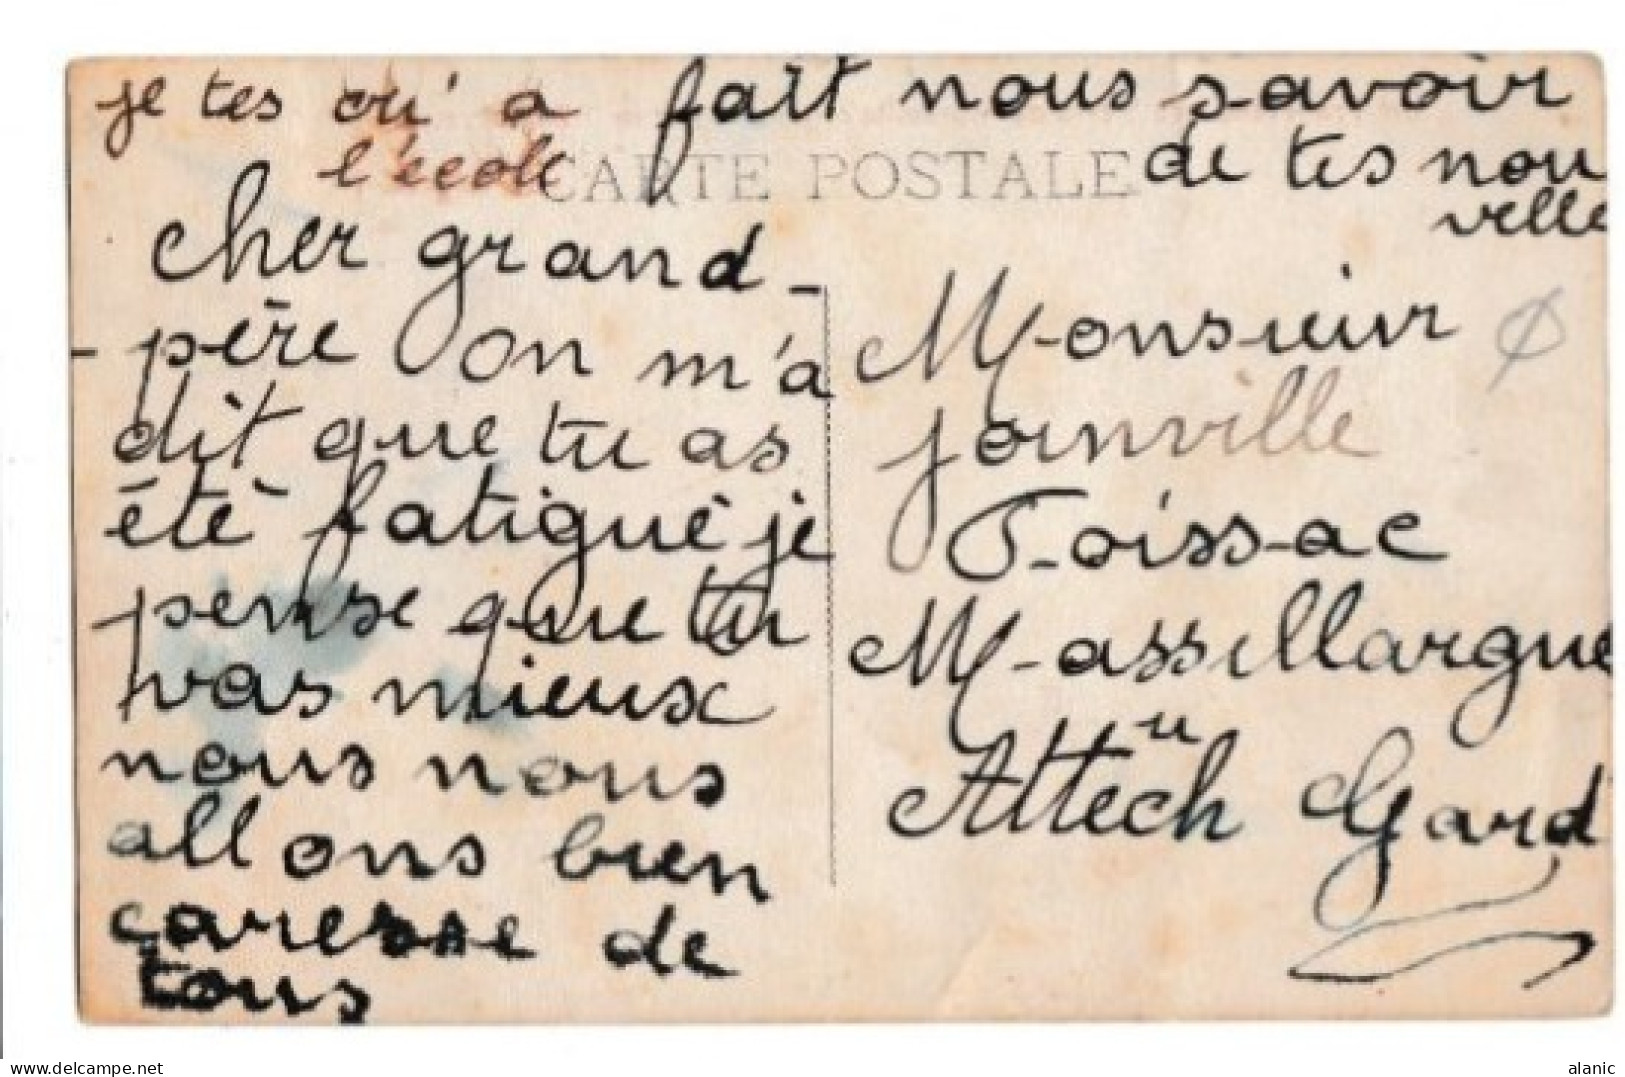 je tes ou' a
l'école
fait nous savoir
de tes nou
velle
CARTE POSTALE
cher grand-
-père on m'a
dit que tu as
été fatigué je
pense que tu
vas mieux
nous nous
allons bien
caresse de
tous
Monsieur
joinville
Toissac
Massillargue
Attech Gard
u
alanic